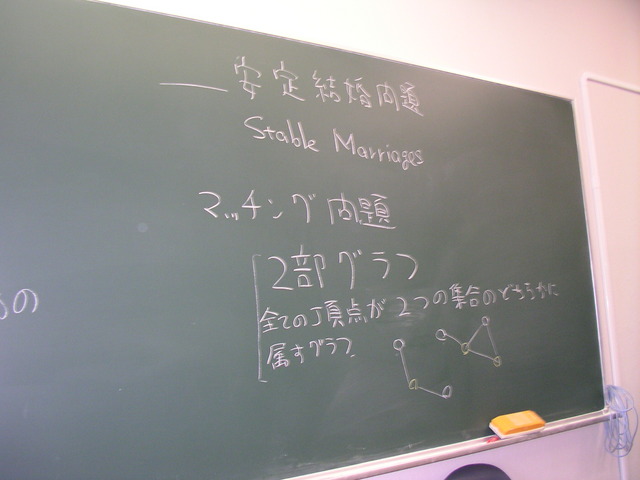 ― 安定結婚問題
Stable Marriages
マッチング問題
2部グラフ
全ての頂点が2つの集合のどちらかに
属すグラフ
の